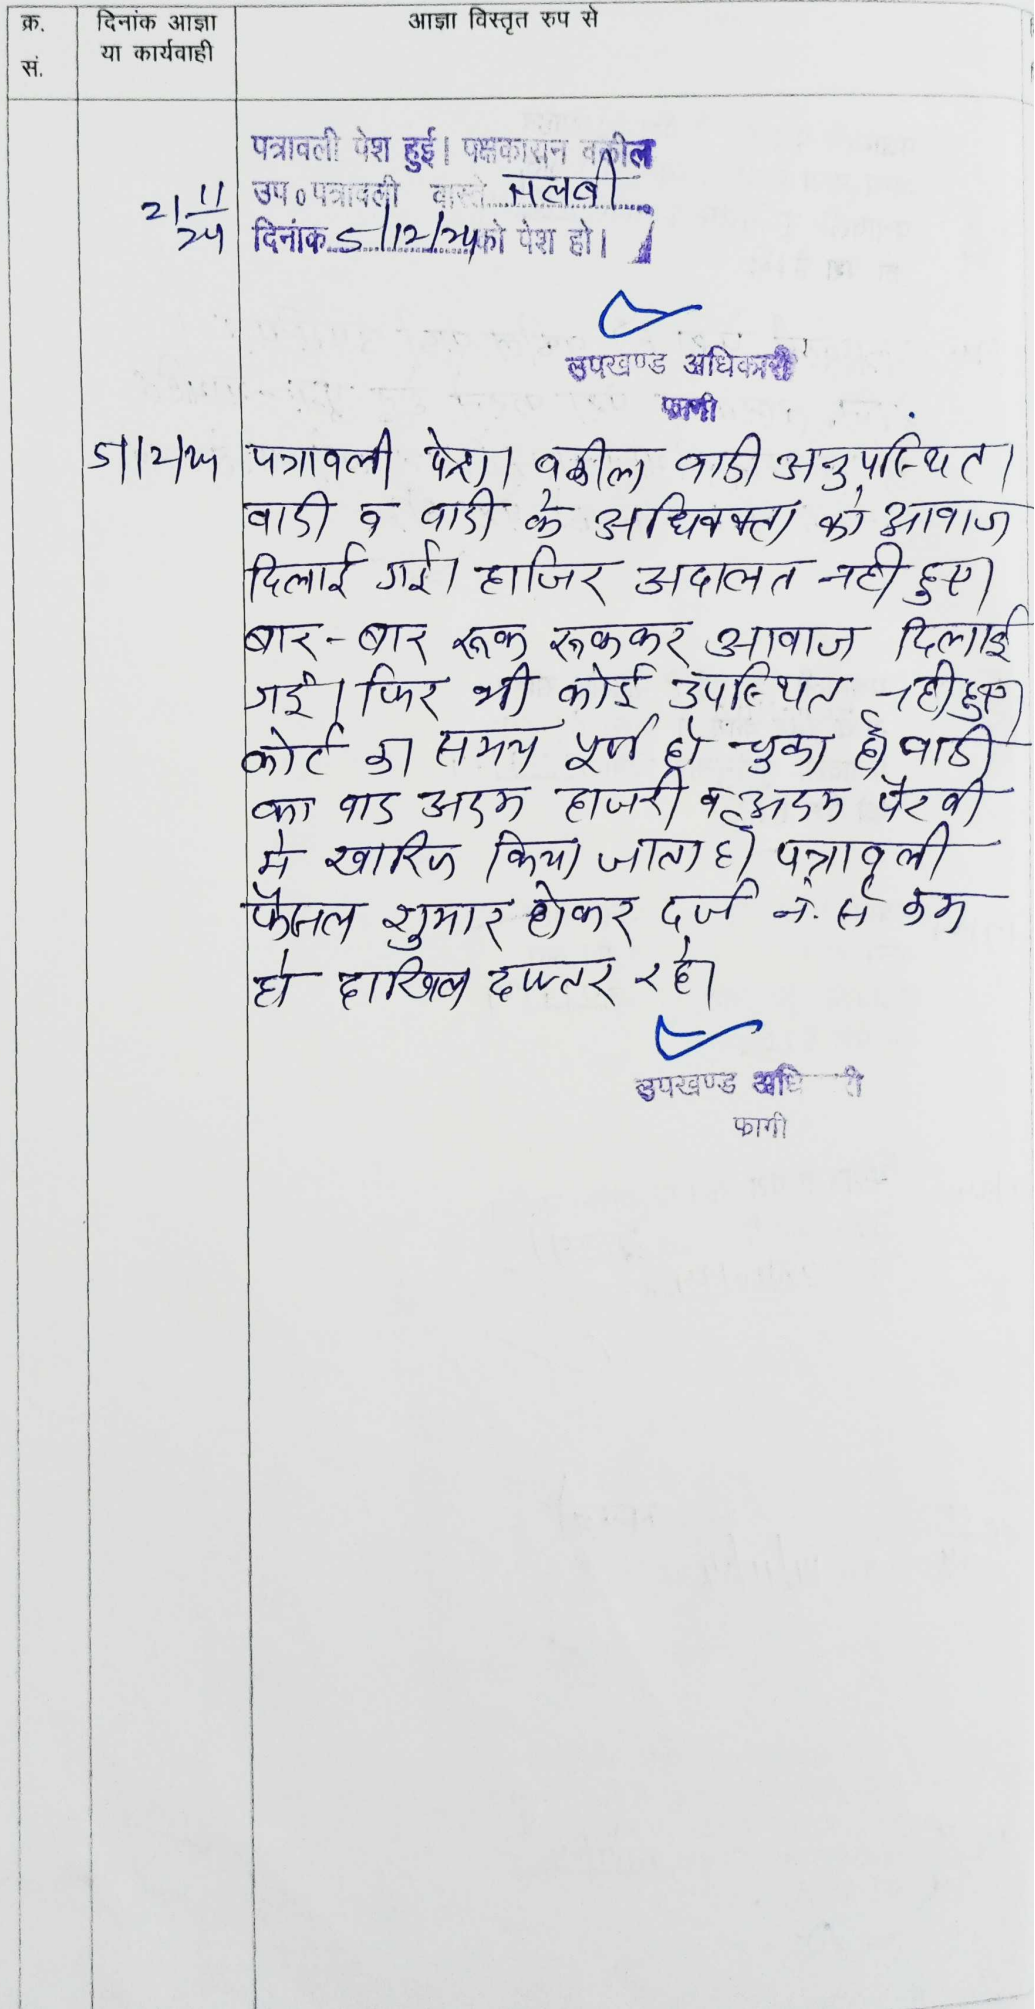 क्र. सं.
दिनांक आज्ञा या कार्यवाही
आज्ञा विस्तृत रुप से
पत्रावली पेश हुई। पक्षकारान वकील
21/11/24
उप० पत्रावली वास्ते तलबी
दिनांक 5/12/24 को पेश हो।
उपखण्ड अधिकारी
फागी
5/12/24
पत्रावली पेश। वकील वादी अनुपस्थित।
वादी व वादी के अधिवक्ता को आवाज
दिलाई गई। हाजिर अदालत नही हुए।
बार-बार रूक रूककर आवाज दिलाई
गई। फिर भी कोई उपस्थित नही हुए।
कोर्ट का समय पूर्ण हो चुका है। वादी
का वाद अदम हाजरी व अदम पैरवी
मे खारिज किया जाता है। पत्रावली
फैसल शुमार होकर दर्ज नं. से कम
हो दाखिल दफ्तर रहे।
उपखण्ड अधि री
फागी